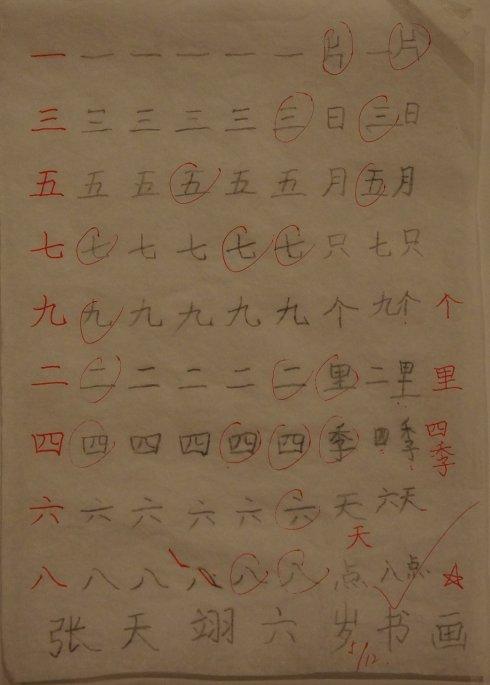 一 一 一 一 一 一 片 一片
三 三 三 三 三 三 日 三日
五 五 五 五 五 五 月 五月
七 七 七 七 七 七 只 七只
九 九 九 九 九 九 个 九个 个
二 二 二 二 二 二 里 二里 里
四 四 四 四 四 四 季 四季 四季
六 六 六 六 六 六 天 六天
天
八 八 八 八 八 八 点 八点
张天翊六岁书画
5/12